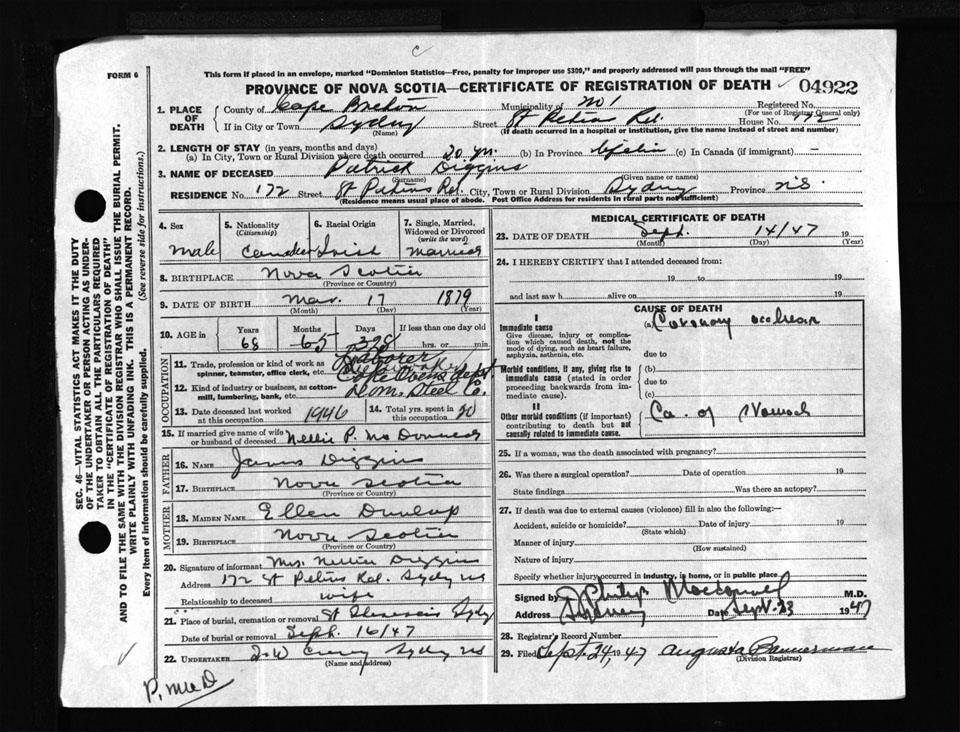 C
FORM 6
This form if placed in an envelope, marked "Dominion Statistics—Free, penalty for improper use $300," and properly addressed will pass through the mail "FREE"
PROVINCE OF NOVA SCOTIA—CERTIFICATE OF REGISTRATION OF DEATH 04922
1. PLACE OF DEATH
County of Cape Breton Municipality of No 1 Registered No.
(For use of Registrar General only)
If in City or Town Sydney Street St Peters Rd. House No. 172
(Name) (If death occurred in a hospital or institution, give the name instead of street and number)
2. LENGTH OF STAY (in years, months and days)
(a) In City, Town or Rural Division where death occurred 20 yr. (b) In Province (c) In Canada (if immigrant) —
3. NAME OF DECEASED Patrick Diggins
(Surname) (Given name or names)
RESIDENCE No. 172 Street St Peters Rd. City, Town or Rural Division Sydney Province N.S.
(Residence means usual place of abode. Post Office Address for residents in rural parts not sufficient)
4. Sex
Male
5. Nationality
(Citizenship)
6. Racial Origin
Irish
7. Single, Married, Widowed or Divorced
(write the word)
Married
8. BIRTHPLACE Nova Scotia
(Province or Country)
9. DATE OF BIRTH Mar. 17 1879
(Month) (Day) (Year)
10. AGE in Years Months Days If less than one day old
68 hrs. or min.
OCCUPATION
11. Trade, profession or kind of work as spinner, teamster, office clerk, etc. Laborer
12. Kind of industry or business, as cotton-mill, lumbering, bank, etc. Coke Ovens dept Dom. Steel Co.
13. Date deceased last worked at this occupation 1946
14. Total yrs. spent in this occupation 20
15. If married give name of wife or husband of deceased Nellie P.
FATHER
16. NAME James Diggins
17. BIRTHPLACE Nova Scotia
(Province or Country)
MOTHER
18. MAIDEN NAME Ellen Dunlap
19. BIRTHPLACE Nova Scotia
(Province or Country)
20. Signature of informant Mrs. Nellie Diggins
Address 172 St Peters Rd. Sydney NS
Relationship to deceased wife
21. Place of burial, cremation or removal St Sydney
Date of burial or removal Sept. 16/47
22. UNDERTAKER Sydney NS
(Name and address)
MEDICAL CERTIFICATE OF DEATH
23. DATE OF DEATH Sept. 14/47 19
(Month) (Day) (Year)
24. I HEREBY CERTIFY that I attended deceased from:
19 to 19
and last saw h alive on 19
CAUSE OF DEATH
I
Immediate cause
Give disease, injury or complication which caused death, not the mode of dying, such as heart failure, asphyxia, asthenia, etc.
(a) Coronary
due to
Morbid conditions, if any, giving rise to immediate cause (stated in order proceeding backwards from immediate cause).
(b)
due to
(c)
II
Other morbid conditions (if important) contributing to death but not causally related to immediate cause.
Ca. of Stomach
25. If a woman, was the death associated with pregnancy?
26. Was there a surgical operation? Date of operation 19
State findings Was there an autopsy?
27. If death was due to external causes (violence) fill in also the following:—
Accident, suicide or homicide? Date of injury 19
(State which)
Manner of injury
(How sustained)
Nature of injury
Specify whether injury occurred in industry, in home, or in public place
Signed by Macdonald M.D.
Address Sydney Date Sept. 23 1947
28. Registrar's Record Number
29. Filed Sept. 24, 1947 Augusta Bannerman
(Division Registrar)
SEC. 46—VITAL STATISTICS ACT MAKES IT THE DUTY
OF THE UNDERTAKER OR PERSON ACTING AS UNDER-
TAKER TO OBTAIN ALL THE PARTICULARS REQUIRED
IN THE "CERTIFICATE OF REGISTRATION OF DEATH"
AND TO FILE THE SAME WITH THE DIVISION REGISTRAR WHO SHALL ISSUE THE BURIAL PERMIT.
WRITE PLAINLY WITH UNFADING INK. THIS IS A PERMANENT RECORD.
Every item of information should be carefully supplied. (See reverse side for instructions.)